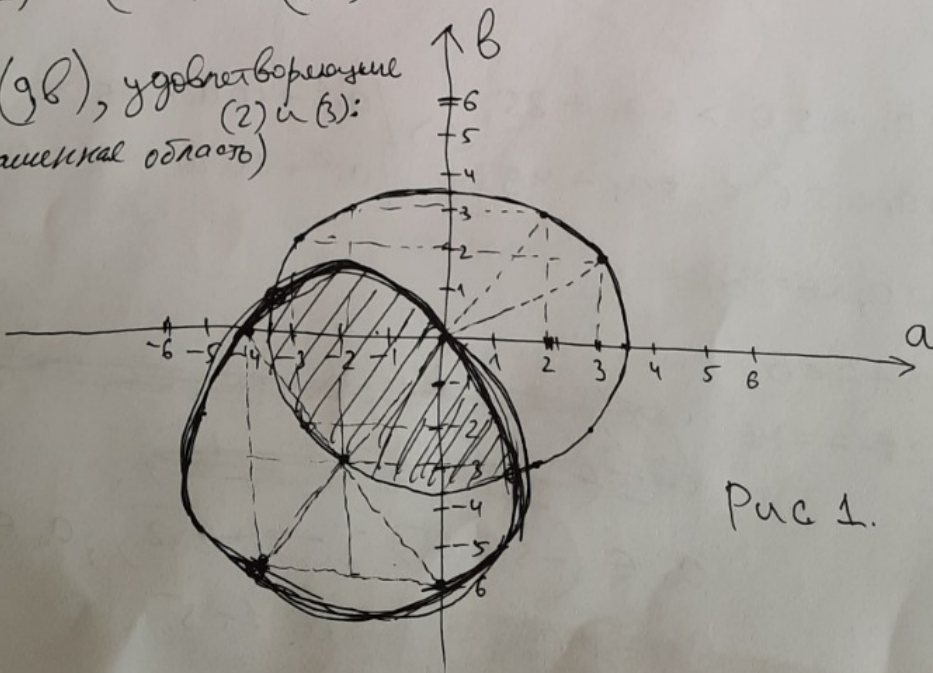 (a,b), удовлетворяющие
(2) и (3):
ашенная область)
b
6
5
4
3
2
1
-6 -5 -4 -3 -2 -1 1 2 3 4 5 6
a
-
-2
-3
-4
-5
6
Рис 1.